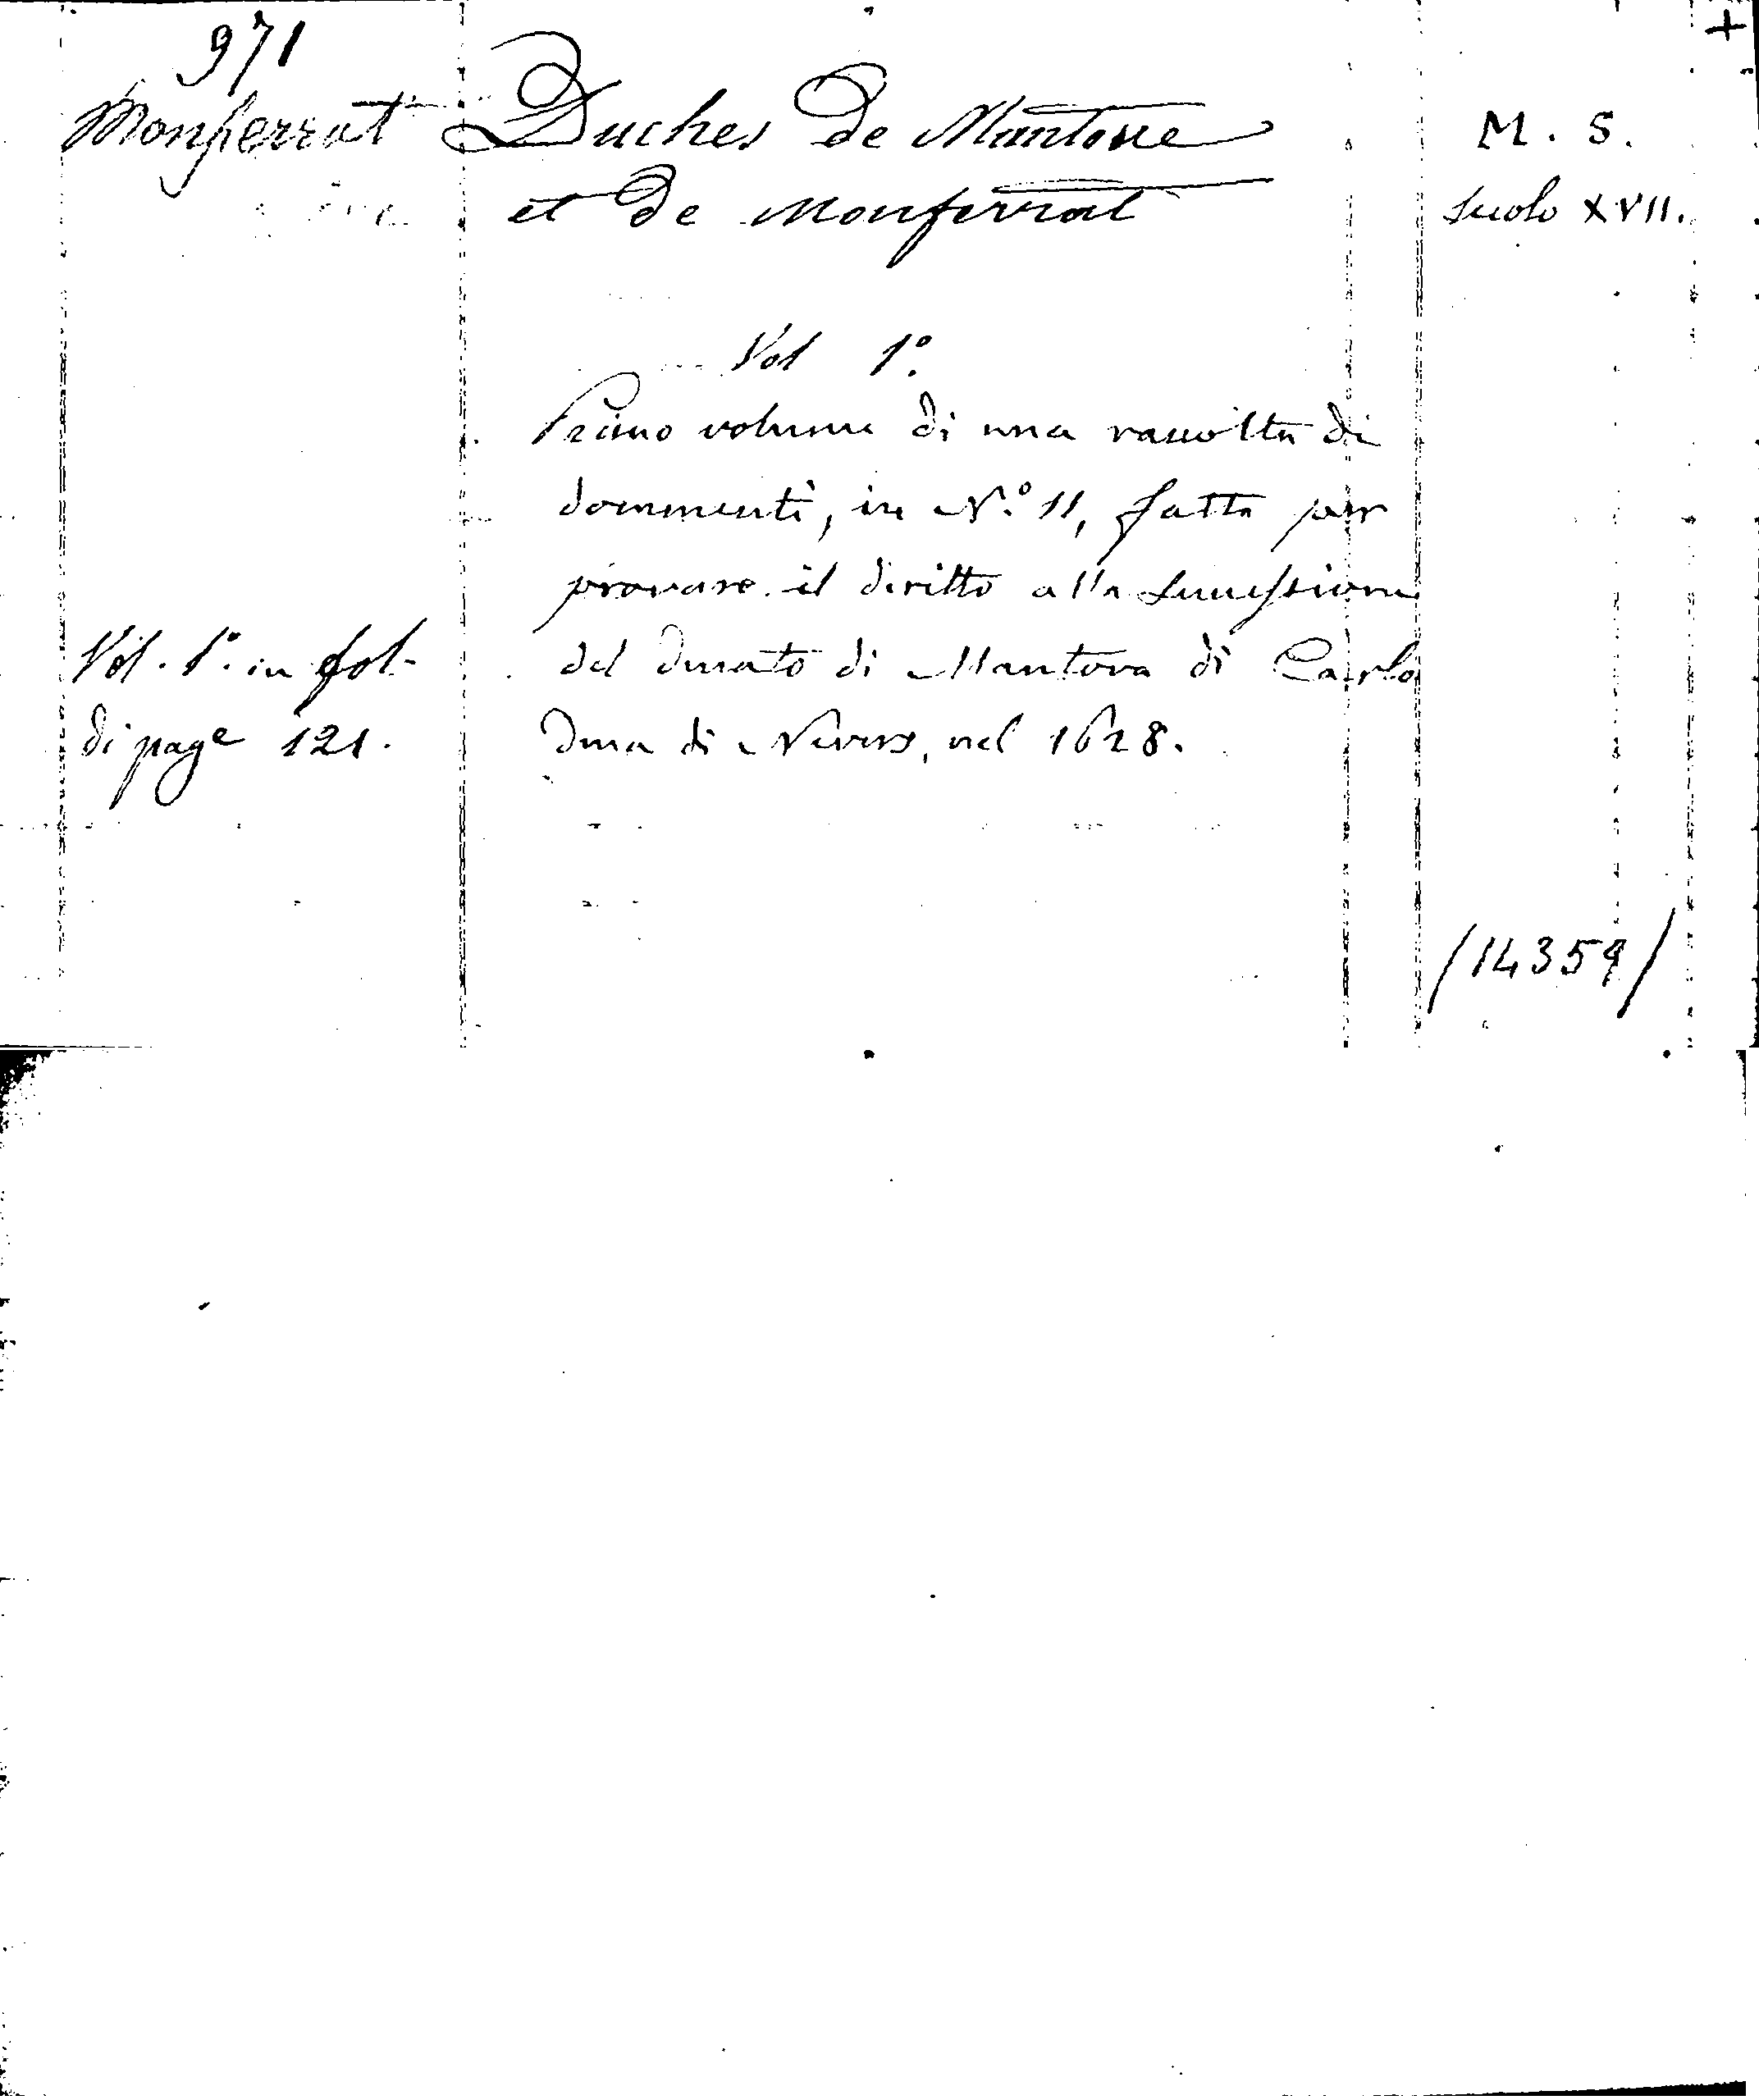 971
+
Monferrat
Duches de Mantoue
et de Monferrat
M. S.
Secolo XVII.
Vol 1º.
Primo volume di una raccolta di
documenti, in Nº. 11, fatta per
provare il diritto alla successione
del ducato di Mantova di Carlo
Duca di Nevers, nel 1628.
Vol. 1º. in fol-
di page 121.
/14359/